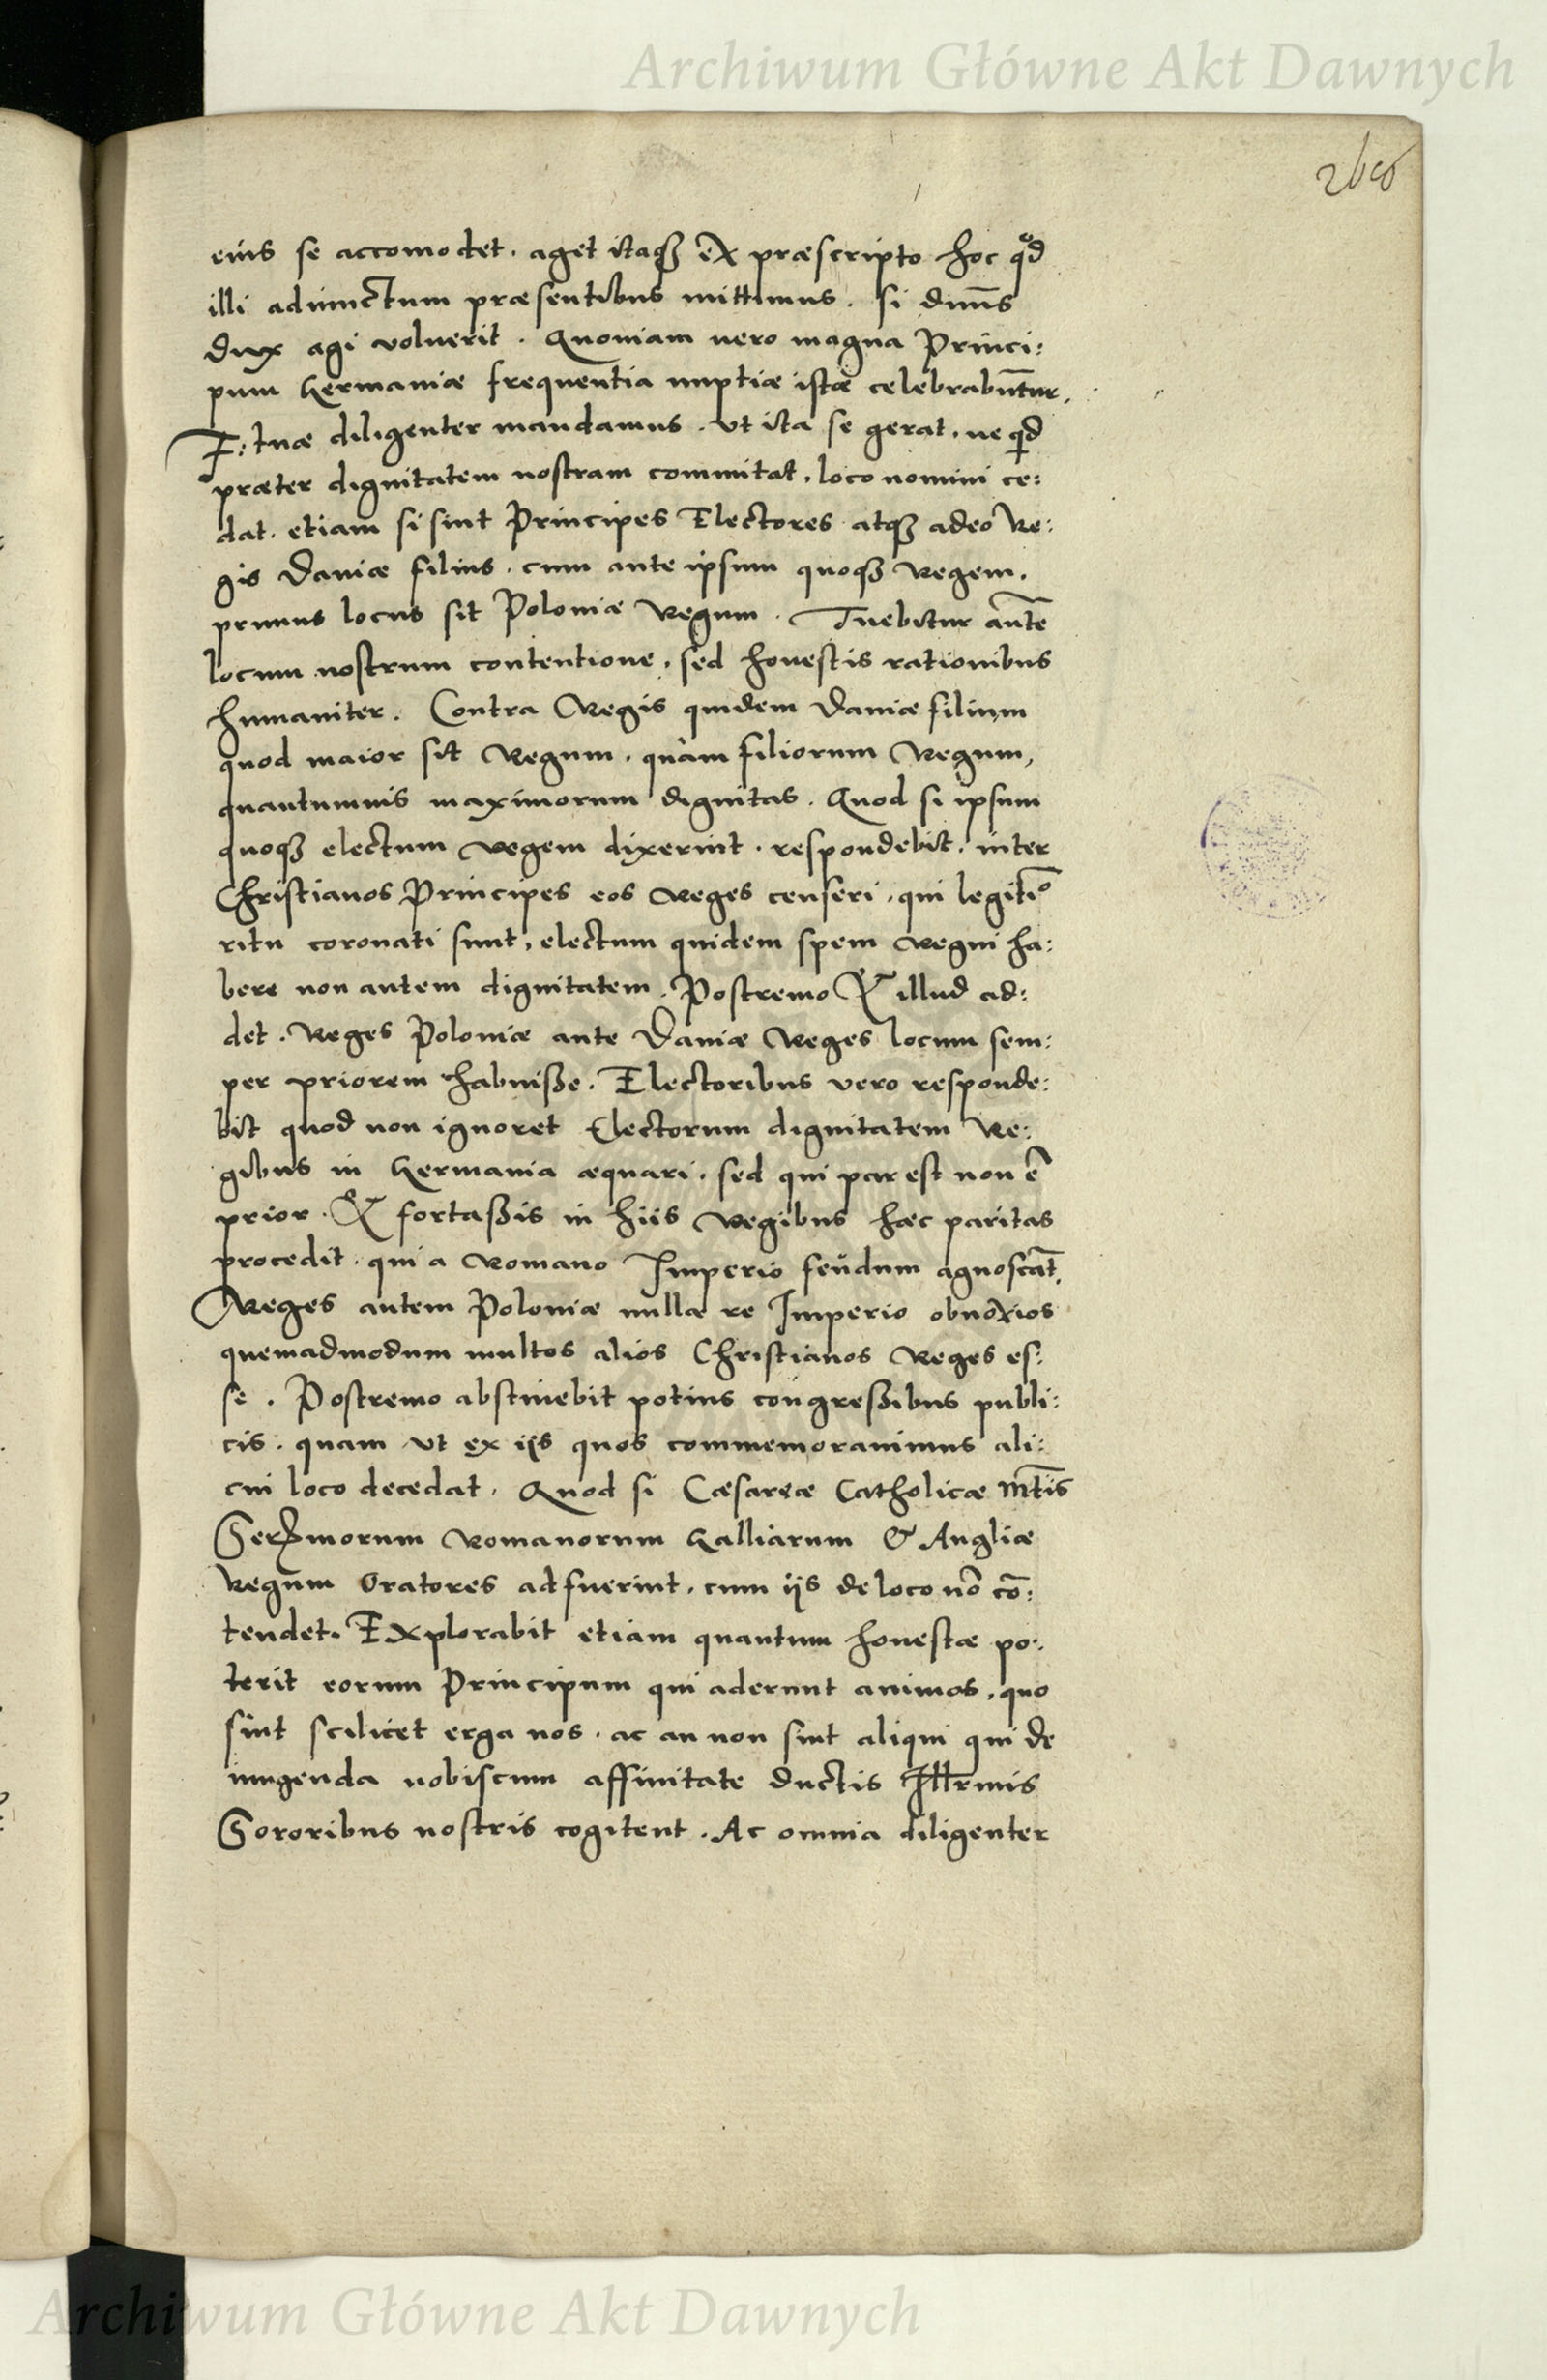 Archiwum Główne Akt Dawnych
eius se accomodet. aget itaqꝫ ex præscripto hoc qͦd
illi adiunctum præsentibus mittimus. si dnūs
dux agi voluerit. Quoniam vero magna Princi:
pum Germaniæ frequentia nuptiæ istæ celebrabūtur.
F: tuæ diligenter mandamus. Ut ita se gerat. ne qͥd
præter dignitatem nostram committat. loco nemini ce:
dat. etiam si sint Principes Electores atqꝫ adeo Re:
gis Daniæ filius. cum ante ipsum quoqꝫ Regem.
primus locus sit Poloniæ Regum. Tuebitur aūte
locum nostrum contentione, sed honestis rationibus
humaniter. Contra Regis quidem Daniæ filium
quod maior sit Regum. quàm filiorum Regum,
quantumuis maximorum dignitas. Quod si ipsum
quoqꝫ electum regem dixerint. respondebit. inter
Christianos Principes eos Reges censeri. qui legitiō
ritu coronati sunt, electum quidem spem Regni ha:
bere non autem dignitatem. Postremo & illud ad:
det. Reges Poloniæ ante Daniæ Reges locum sem:
per priorem habuisse. Electoribus vero responde:
bit quod non ignoret Electorum dignitatem Re:
gibus in Germania æquari. sed qui par est non ē
prior. & fortassis in hiis Regibus hæc paritas
procedit. qui a Romano Imperio feudum agnoscāt,
Reges autem Poloniæ nulla re Imperio obnoxios
quemadmodum multos alios Christianos Reges es:
se. Postremo abstinebit potius congressibus publi:
cis. quam ut ex iis quos commemorauimus ali:
cui loco decedat. Quod si Cæsareæ Catholicæ Mtis
Serᵐorum Romanorum Galliarum & Angliæ
Regum Oratores adfuerint. cum iis de loco nō cō:
tendet. Explorabit etiam quantum honestæ po:
terit eorum Principum qui aderunt animos. quo
sint scilicet erga nos. ac an non sint aliqui qui de
iungenda nobiscum affinitate ductis Illrmis
Sororibus nostris cogitent. Ac omnia diligenter
Archiwum Główne Akt Dawnych